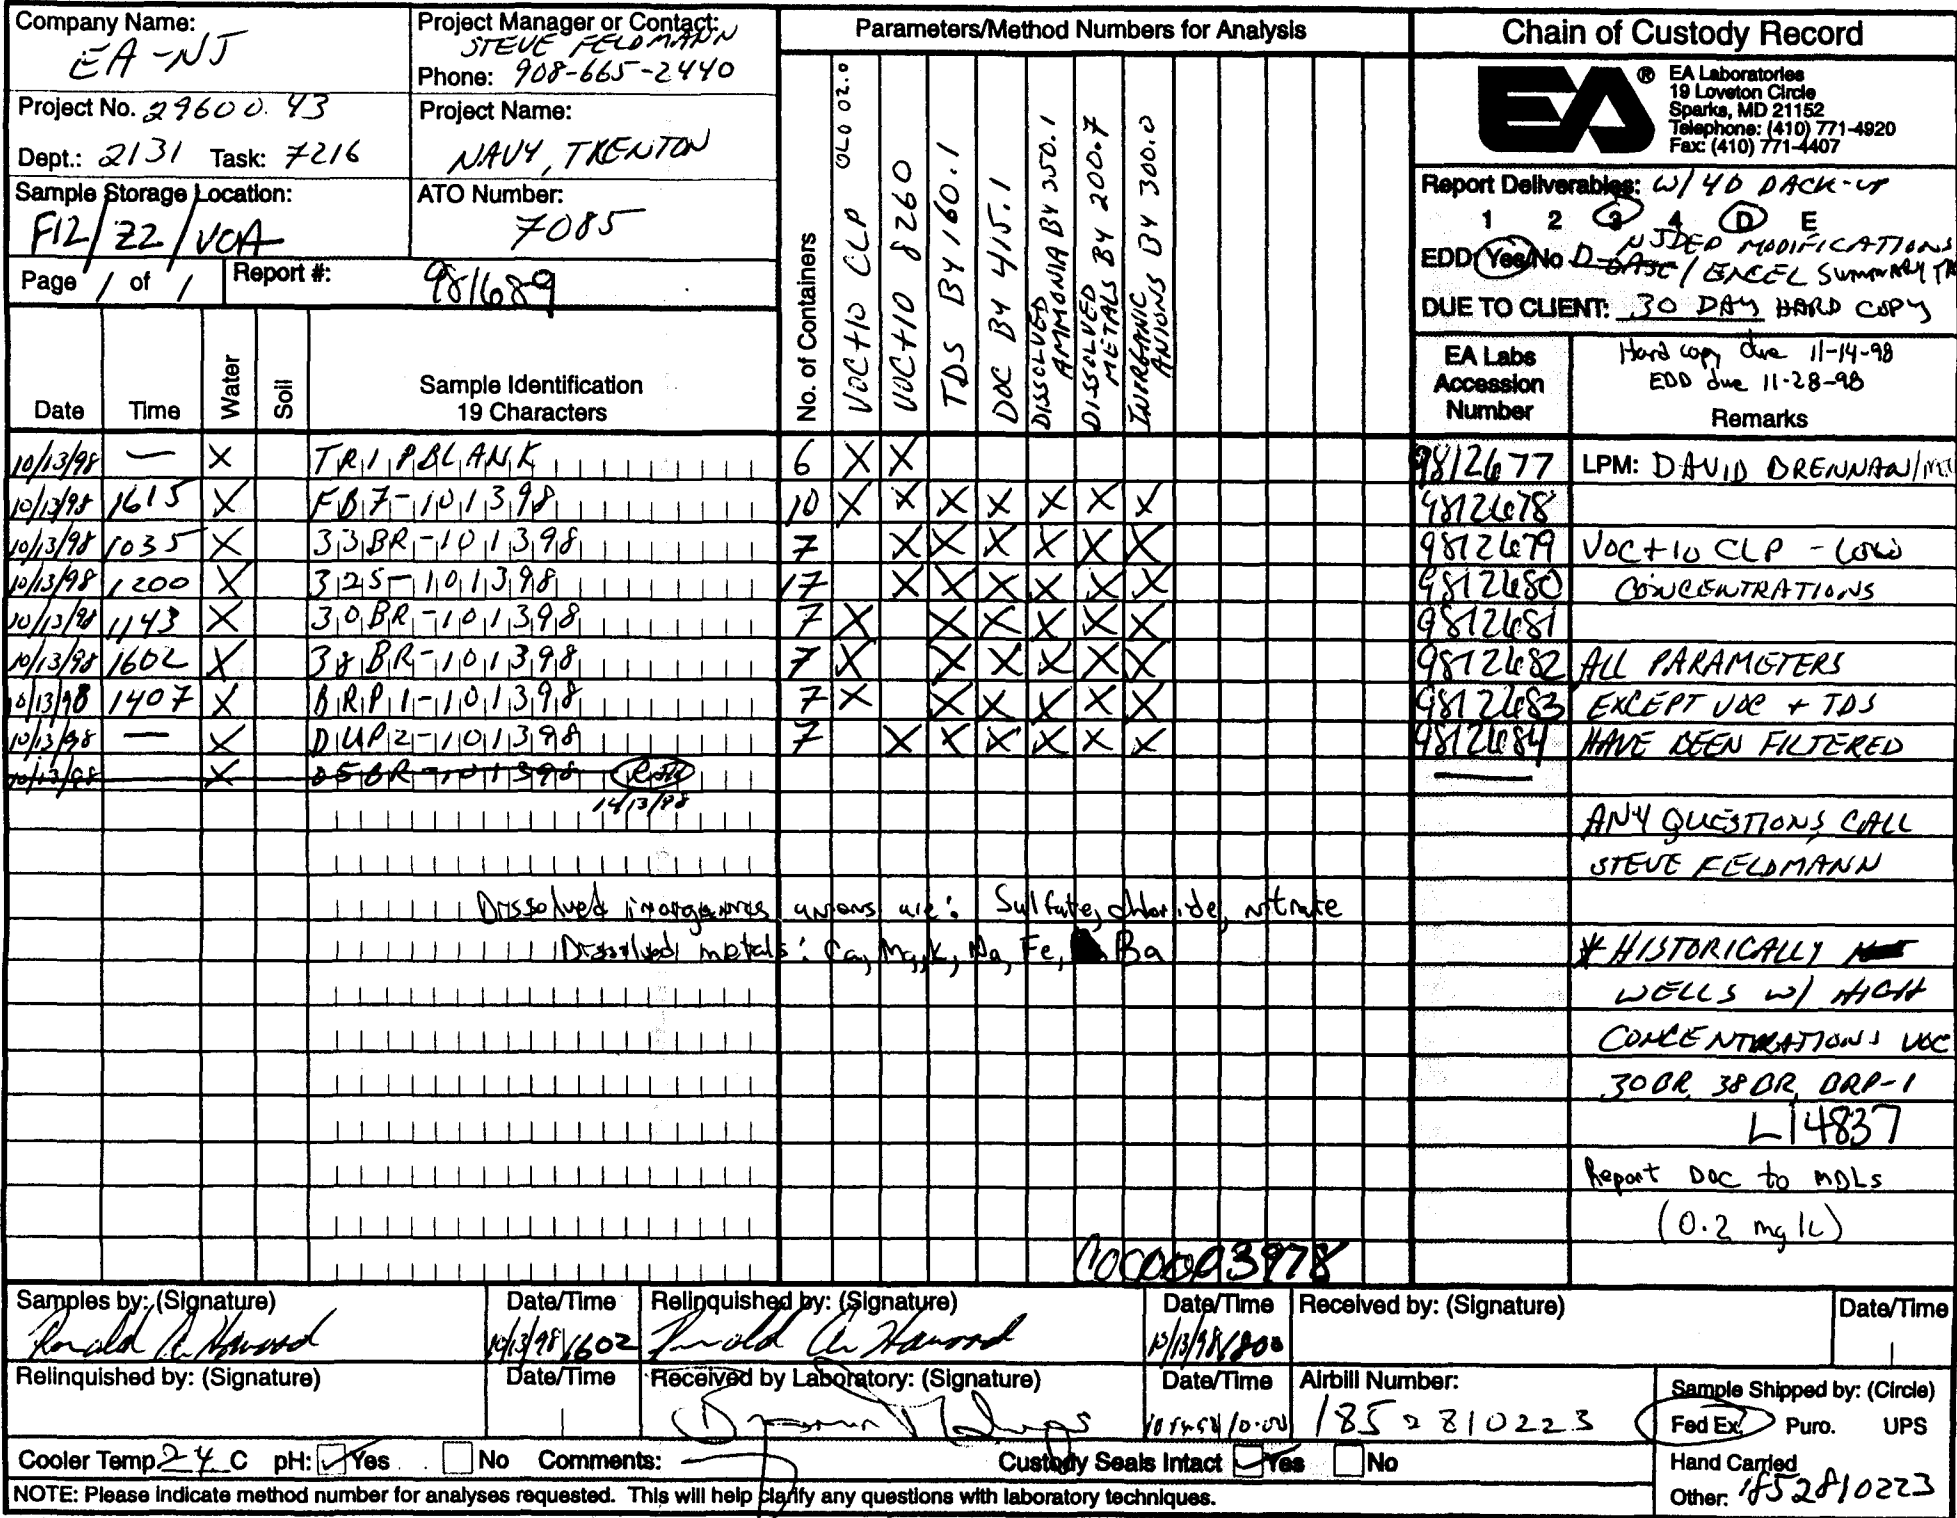 Company Name:
EA-NJ
Project Manager or Contact:
STEVE FELDMANN
Phone: 908-665-2440
Project No. 29600.43
Dept.: 2131 Task: 7216
Project Name:
NAVY, TRENTON
Sample Storage Location:
F12/Z2/VOA
ATO Number:
7085
Page 1 of 1
Report #: 981689
Parameters/Method Numbers for Analysis
Chain of Custody Record
EA ®
EA Laboratories
19 Loveton Circle
Sparks, MD 21152
Telephone: (410) 771-4920
Fax: (410) 771-4407
Report Deliverables: W/ 4D BACK-UP
1 2 3 4 D E
NJDEP MODIFICATIONS
EDD Yes/No D-BASE/ EXCEL SUMMARY
DUE TO CLIENT: 30 DAY HARD COPY
Date
Time
Water
Soil
Sample Identification
19 Characters
No. of Containers
VOC+10 CLP OLC 02.0
VOC+10 8260
TDS BY 160.1
DOC BY 415.1
DISSOLVED AMMONIA BY 350.1
DISSOLVED METALS BY 200.7
INORGANIC ANIONS BY 300.0
EA Labs
Accession
Number
Hard copy due 11-14-98
EDD due 11-28-98
Remarks
10/13/98 — X TRIPBLANK 6 X X 9812677 LPM: DAVID BRENNAN/
10/13/98 1615 X FB7-101398 10 X X X X X X X 9812678
10/13/98 1035 X 33BR-101398 7 X X X X X X 9812679 VOC+10 CLP - LOW
10/13/98 1200 X 32S-101398 17 X X X X X X 9812680 CONCENTRATIONS
10/13/98 1143 X 30BR-101398 7 X X X X X X 9812681
10/13/98 1602 X 38BR-101398 7 X X X X X X 9812682 ALL PARAMETERS
10/13/98 1407 X BRP1-101398 7 X X X X X X 9812683 EXCEPT VOC + TDS
10/13/98 — X DUP2-101398 7 X X X X X X 9812684 HAVE BEEN FILTERED
10/13/98 X 05BR-101398
ANY QUESTIONS CALL
STEVE FELDMANN
Dissolved inorganics anions are: Sulfate, chloride, nitrate
Dissolved metals: Ca, Mg, K, Na, Fe, Ba
* HISTORICALLY
WELLS W/ HIGH
CONCENTRATIONS VOC
30BR, 38BR, BRP-1
L14837
Report DOC to MDLs
(0.2 mg/L)
COC0003978
Samples by: (Signature)
Date/Time
10/13/98 1602
Relinquished by: (Signature)
Date/Time
10/13/98 1800
Received by: (Signature)
Date/Time
Relinquished by: (Signature)
Date/Time
Received by Laboratory: (Signature)
Date/Time
Airbill Number:
1852810223
Sample Shipped by: (Circle)
Fed Ex. Puro. UPS
Hand Carried
Other: 1852810223
Cooler Temp 24 C pH: Yes No Comments:
Custody Seals Intact Yes No
NOTE: Please indicate method number for analyses requested. This will help clarify any questions with laboratory techniques.